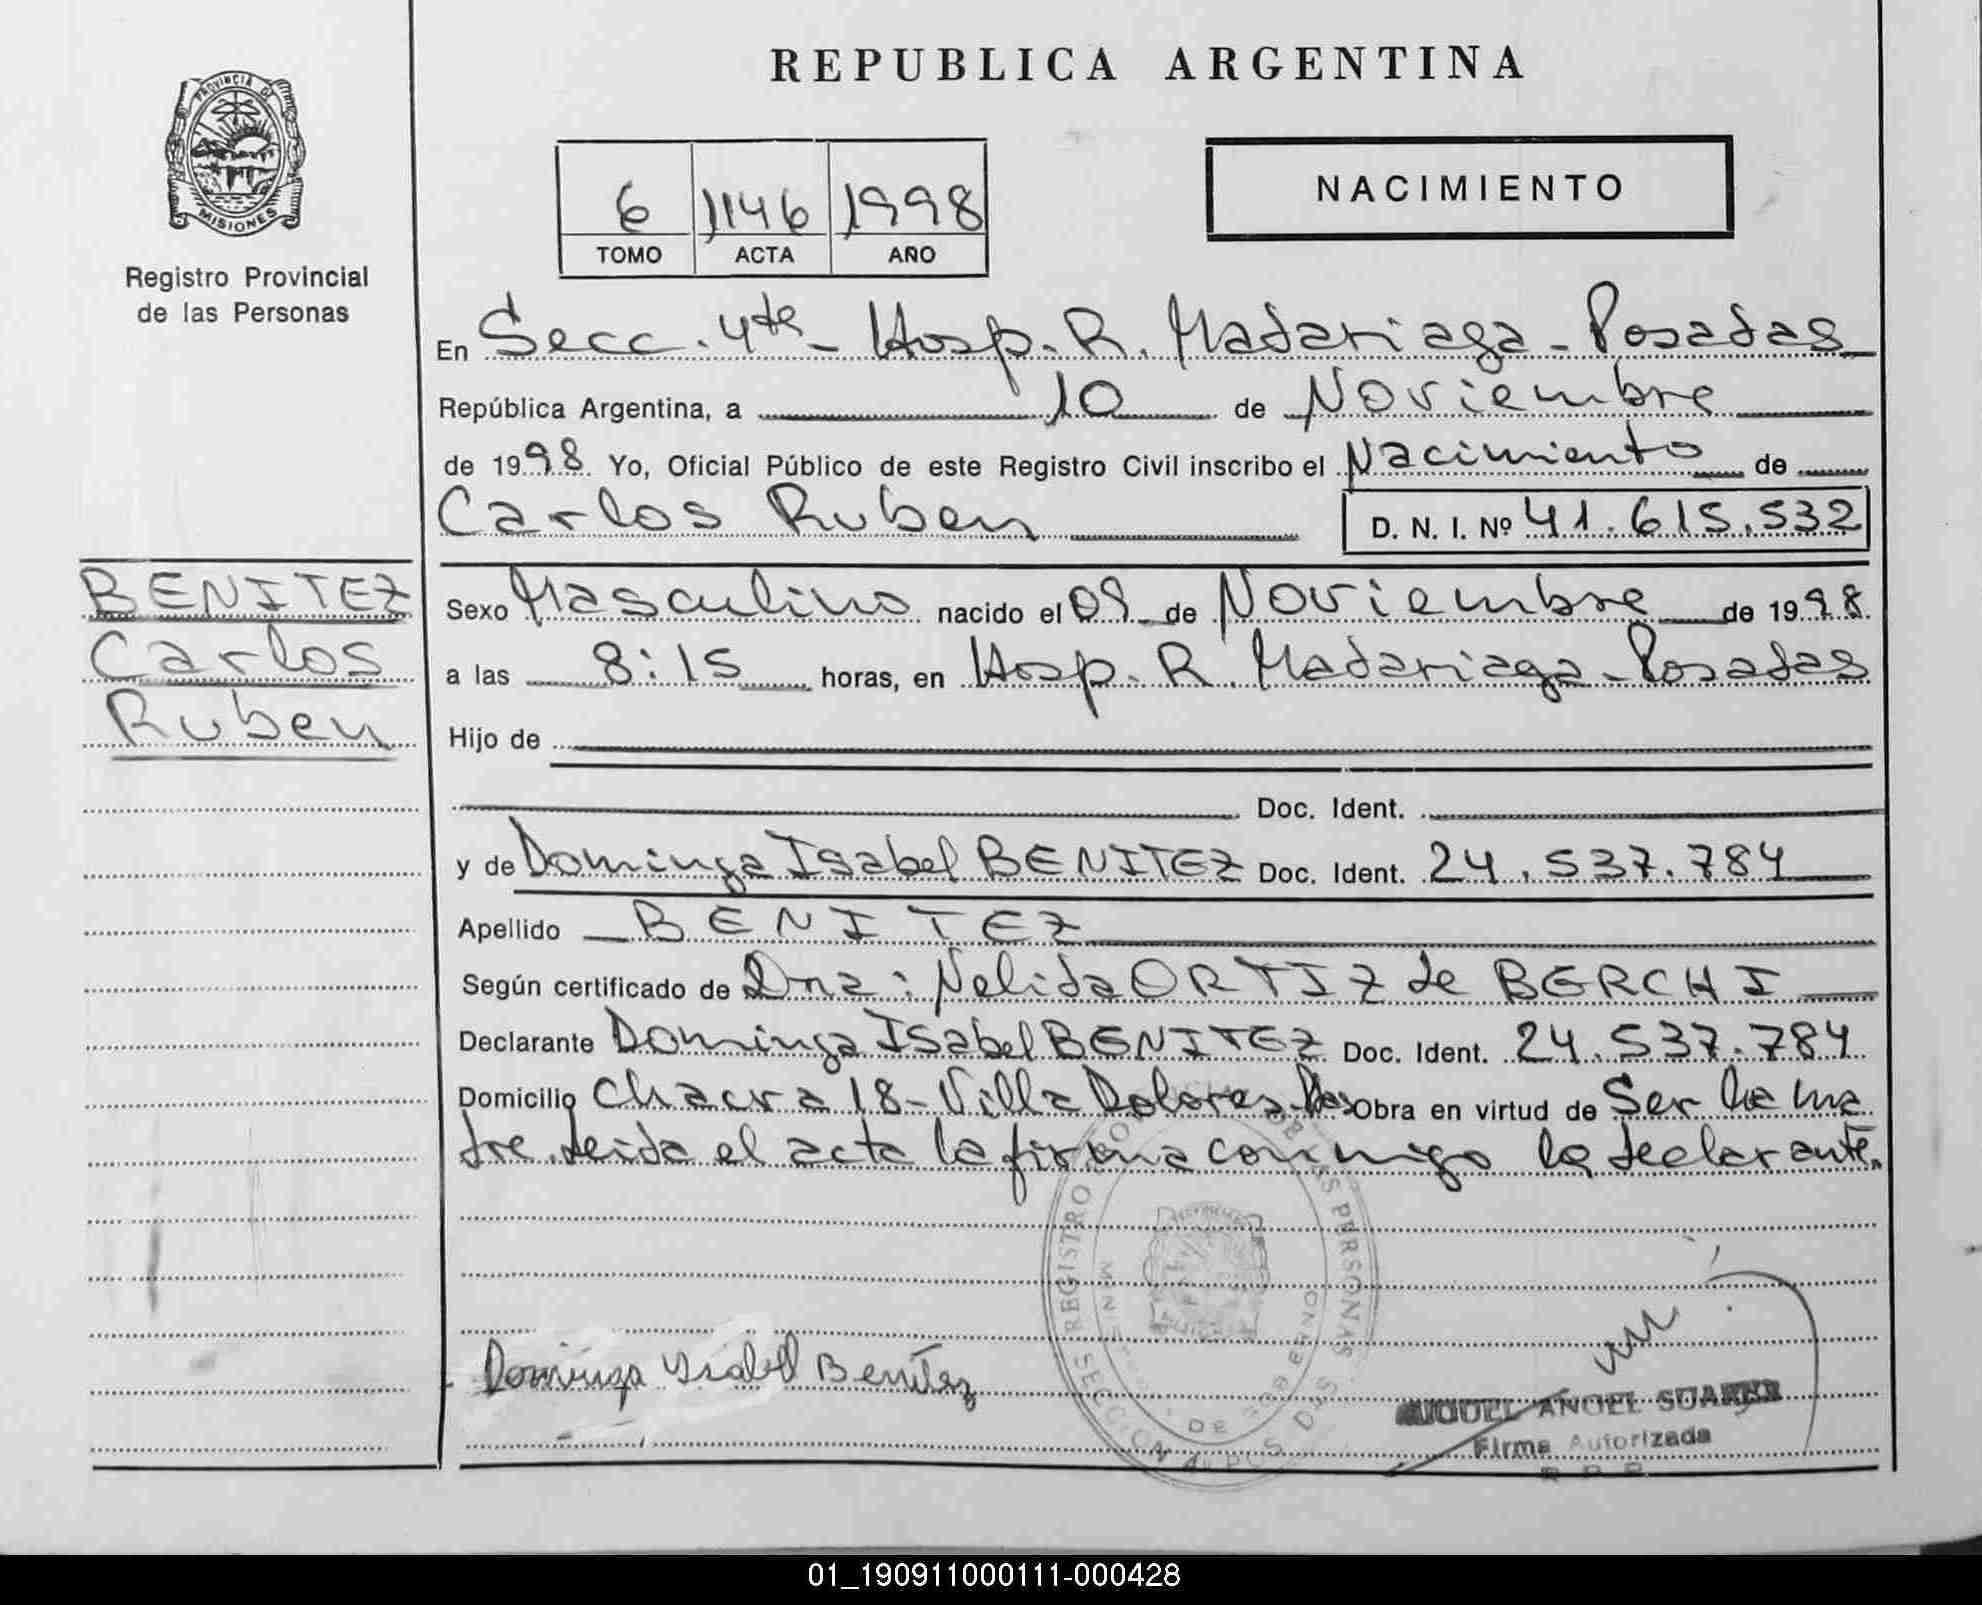 REPUBLICA ARGENTINA
PROVINCIA DE
MISIONES
Registro Provincial
de las Personas
6 1146 1998
TOMO ACTA AÑO
NACIMIENTO
En Secc. 4ta - Hosp. R. Madariaga - Posadas
República Argentina, a 10 de Noviembre
de 1998. Yo, Oficial Público de este Registro Civil inscribo el Nacimiento de
Carlos Ruben D. N. I. Nº 41.615.532
BENITEZ
Carlos
Ruben
Sexo Masculino nacido el 09 de Noviembre de 1998.
a las 8:15 horas, en Hosp. R. Madariaga - Posadas
Hijo de
Doc. Ident.
y de Dominga Isabel BENITEZ Doc. Ident. 24.537.784
Apellido BENITEZ
Según certificado de Dra: Nelida ORTIZ de BERCHI
Declarante Dominga Isabel BENITEZ Doc. Ident. 24.537.784
Domicilio Chacra 18 - Villa Dolores - Pdas Obra en virtud de Ser la ma
dre. Leida el acta la firma conmigo la declarante.
REGISTRO PROVINCIAL DE LAS PERSONAS
DE GOBIERNO
SECCION
Dominga Ysabel Benítez
MIGUEL ANGEL SUAREZ
Firma Autorizada
R. P. P.
01_190911000111-000428